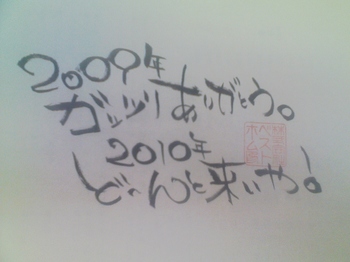 2009年
ガッツリありがとう。
2010年
ど〜んと来いや!